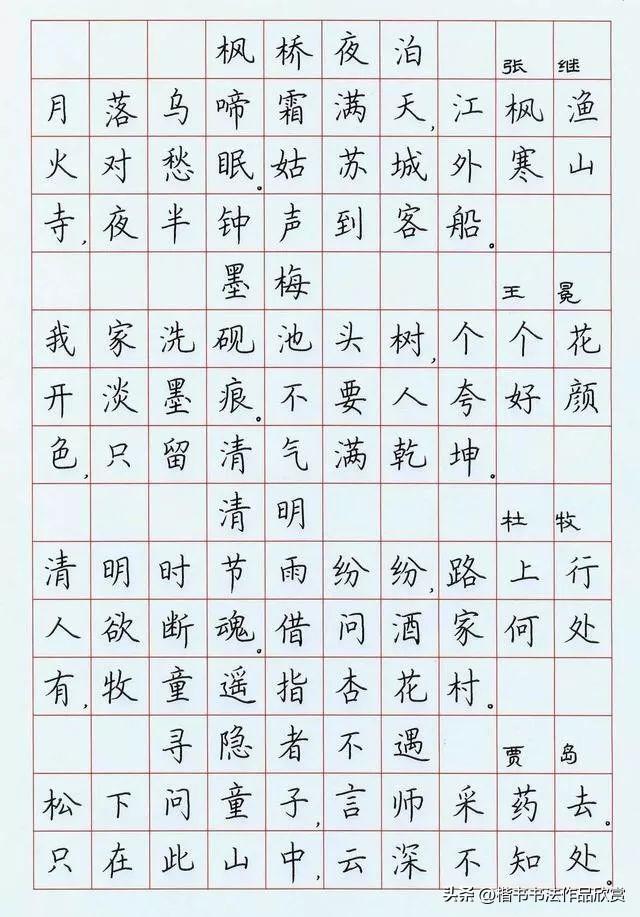 枫桥夜泊 张继
月落乌啼霜满天,江枫渔
火对愁眠。姑苏城外寒山
寺,夜半钟声到客船。
墨梅 王冕
我家洗砚池头树,个个花
开淡墨痕。不要人夸好颜
色,只留清气满乾坤。
清明 杜牧
清明时节雨纷纷,路上行
人欲断魂。借问酒家何处
有,牧童遥指杏花村。
寻隐者不遇 贾岛
松下问童子,言师采药去。
只在此山中,云深不知处。
头条 @楷书书法作品欣赏